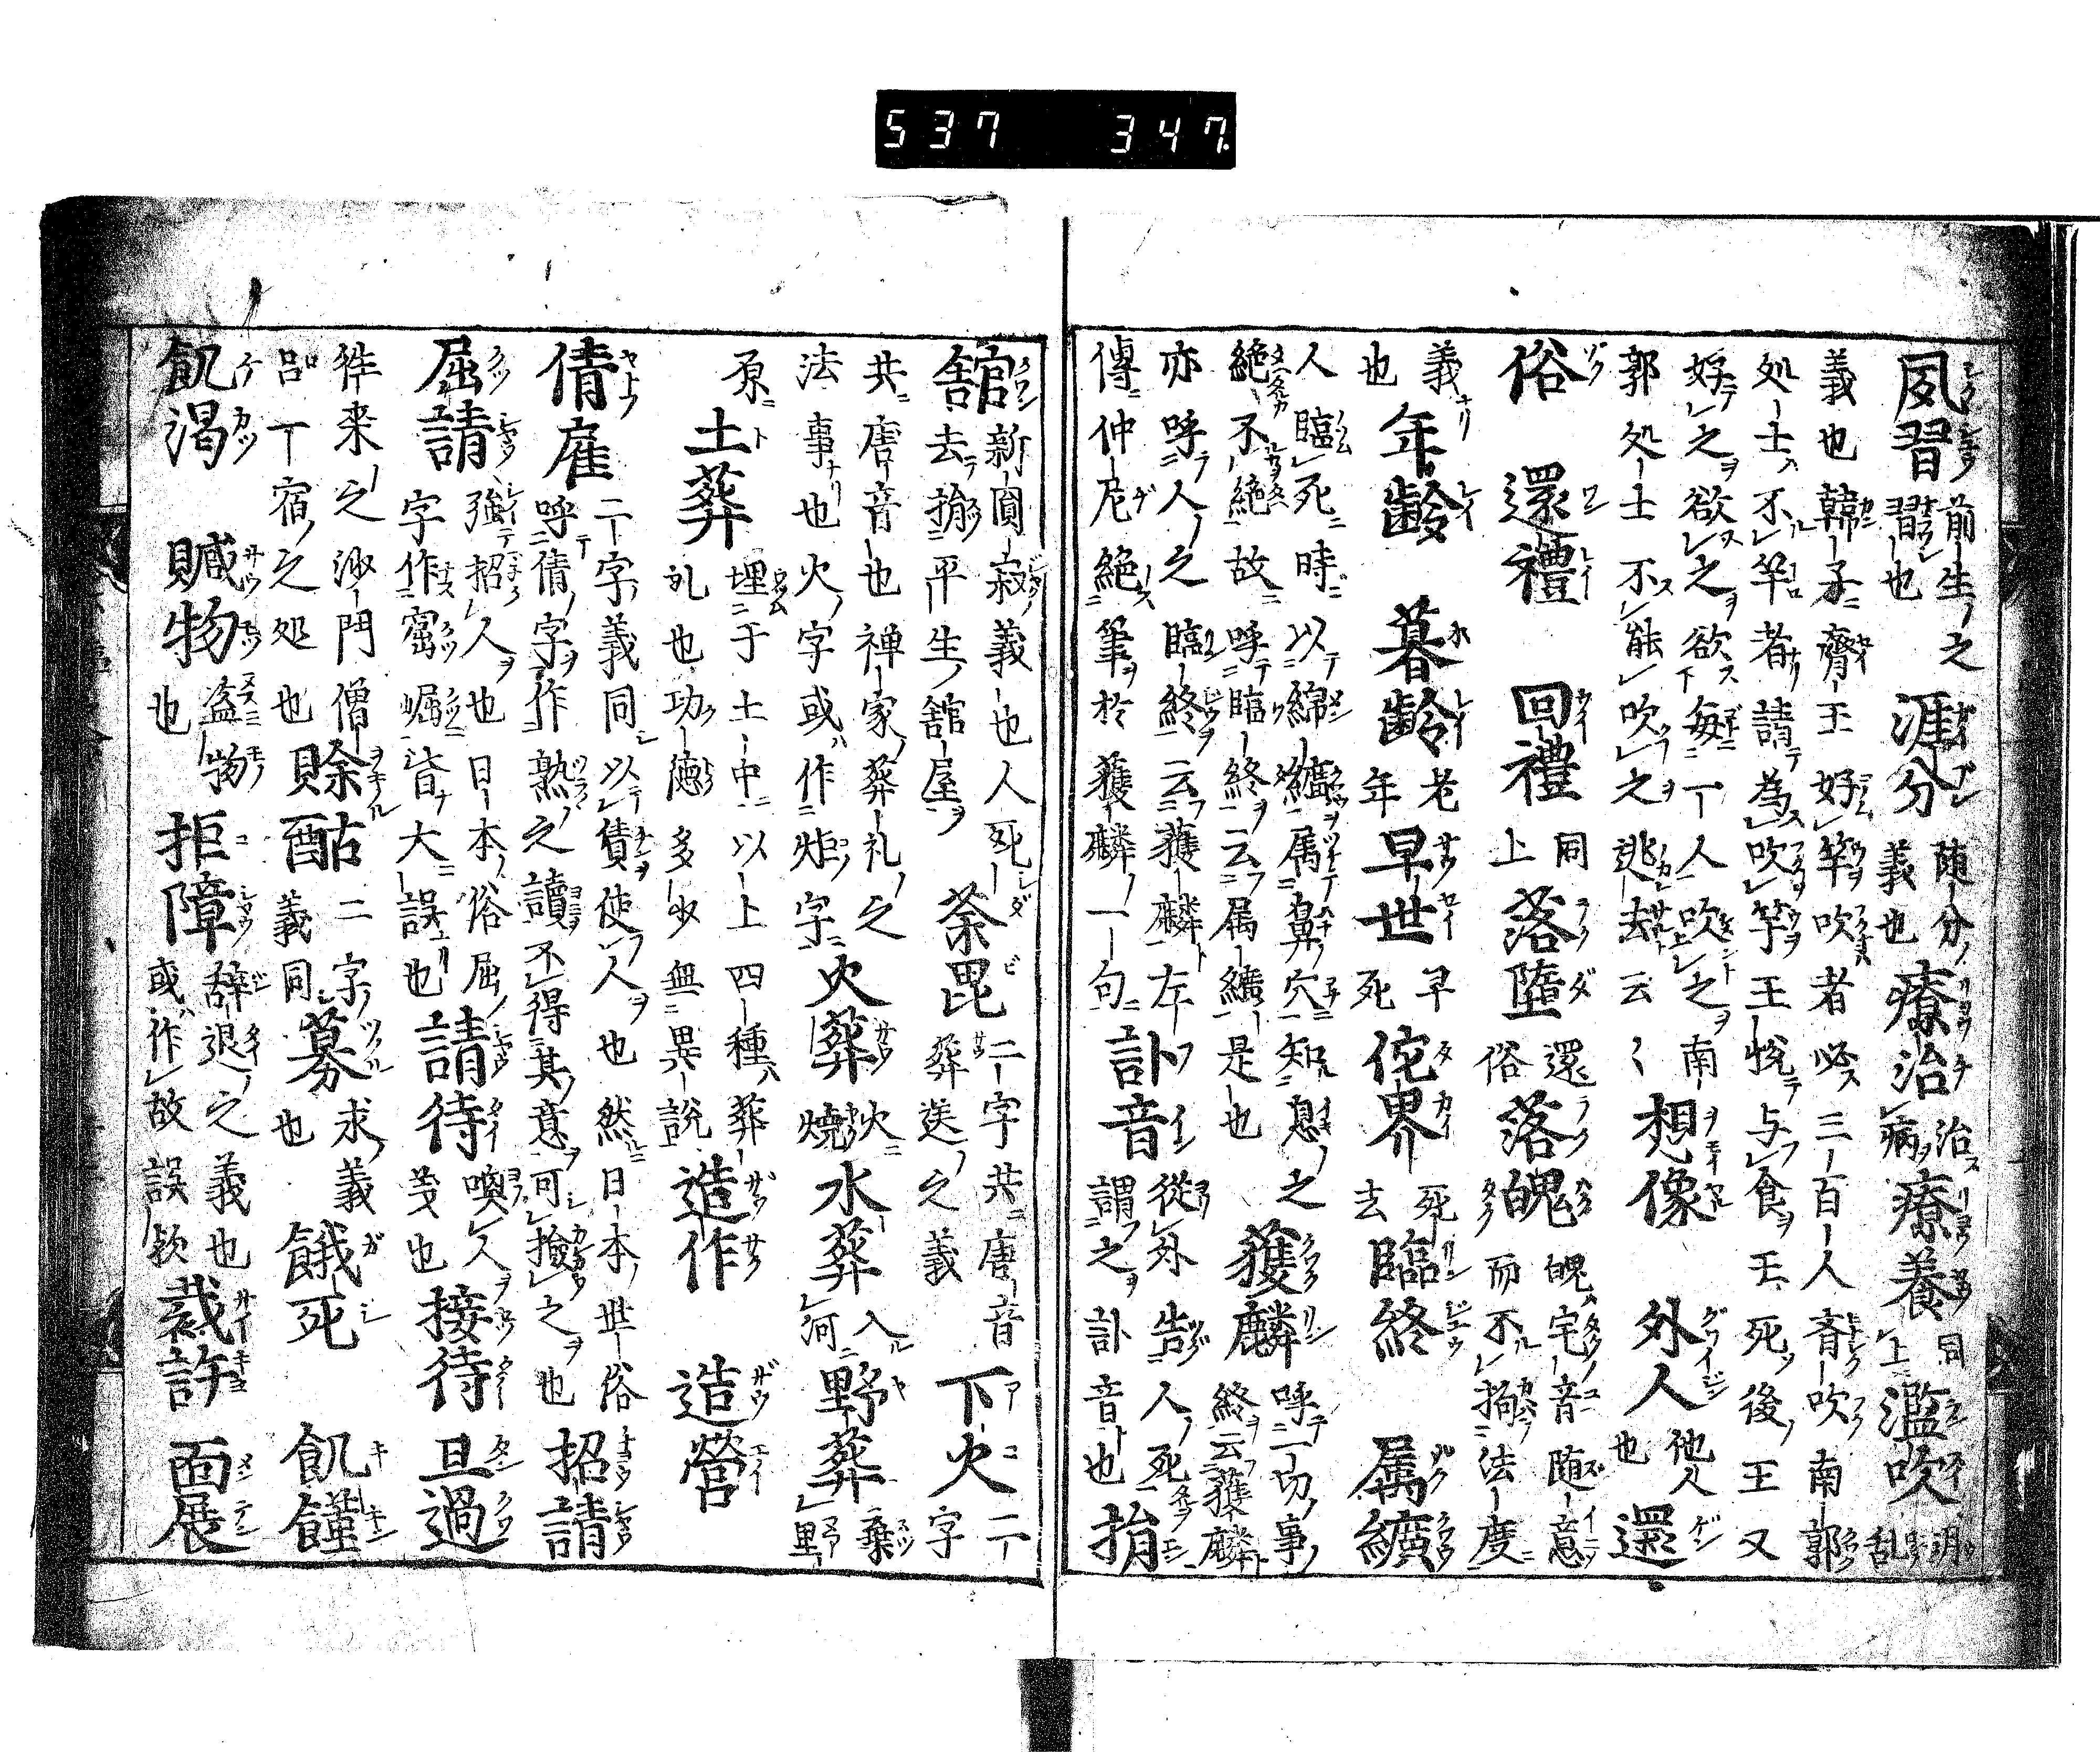 537 347
夙習 前生之習也 涯分 随分義也 療治 治病 療養 同上 濫吹 胡乱
義也韓子齊王好竽吹者必三百人斉吹南郭
処士不竽者請為吹竽王悦与食王死後王又
好之欲之欲毎一人吹之南
郭処士不能吹之逃去云〻 想像 外人 他人也 還
俗 還禮 回禮 同上 落堕 還俗 落魄 魄宅音随意而不拘法度
義也 年齢 暮齢 老年 早世 早死 侘界 死去 臨終 属纊
人臨死時以綿纊属鼻穴知息之
絶不絶故呼臨終云属纊是也 獲麟 呼一切事終云獲麟
亦呼人之臨終云獲麟左
傳仲尼絶筆於獲麟一句 訃音 從外告人死謂之訃音也 捐
舘 新圓寂義也人死去捐平生舘屋 荼毘 二字共唐音葬送之義 下火 二字
共唐音也禅家葬礼之法事也火字或作炬字 火葬 火燒 水葬 入河 野葬 棄野
原 土葬 埋于土中以上四種葬礼也功徳多少無異説 造作 造營
倩雇 二字義同以債使人也然日本世俗呼倩字作熟之讀不得其意可撿之也 招請
屈請 強招人也日本俗屈字作窟崛皆大誤也 請待 喚人義也 接待 旦過
徃来之沙門僧呂一宿之処也 賖酤 二字義同 募 求義也 餓死 飢饉
飢渇 贓物 盗物也 拒障 辞退之義也或作故誤歟 裁許 面展